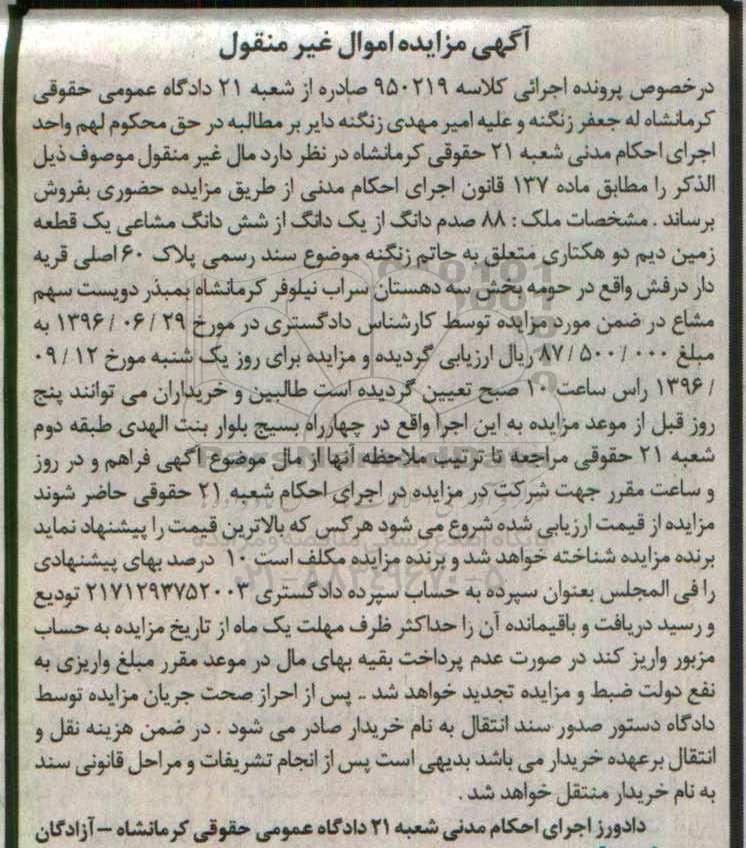 آگهی مزایده اموال غیر منقول
درخصوص پرونده اجرائی کلاسه ۹۵۰۲۱۹ صادره از شعبه ۲۱ دادگاه عمومی حقوقی
کرمانشاه له جعفر زنگنه و علیه امیر مهدی زنگنه دایر بر مطالبه در حق محکوم لهم واحد
اجرای احکام مدنی شعبه ۲۱ حقوقی کرمانشاه در نظر دارد مال غیر منقول موصوف ذیل
الذکر را مطابق ماده ۱۳۷ قانون اجرای احکام مدنی از طریق مزایده حضوری بفروش
برساند . مشخصات ملک : ۸۸ صدم دانگ از یک دانگ از شش دانگ مشاعی یک قطعه
زمین دیم دو هکتاری متعلق به حاتم زنگنه موضوع سند رسمی پلاک ۶۰ اصلی قریه
دار درفش واقع در حومه بخش سه دهستان سراب نیلوفر کرمانشاه بمبذر دویست سهم
مشاع در ضمن مورد مزایده توسط کارشناس دادگستری در مورخ ۲۹ / ۰۶ / ۱۳۹۶ به
مبلغ ۰۰۰ / ۵۰۰ / ۸۷ ریال ارزیابی گردیده و مزایده برای روز یک شنبه مورخ ۱۲ / ۰۹
/ ۱۳۹۶ راس ساعت ۱۰ صبح تعیین گردیده است طالبین و خریداران می توانند پنج
روز قبل از موعد مزایده به این اجرا واقع در چهارراه بسیج بلوار بنت الهدی طبقه دوم
شعبه ۲۱ حقوقی مراجعه تا ترتیب ملاحظه آنها از مال موضوع آگهی فراهم و در روز
و ساعت مقرر جهت شرکت در مزایده در اجرای احکام شعبه ۲۱ حقوقی حاضر شوند
مزایده از قیمت ارزیابی شده شروع می شود هرکس که بالاترین قیمت را پیشنهاد نماید
برنده مزایده شناخته خواهد شد و برنده مزایده مکلف است ۱۰ درصد بهای پیشنهادی
را فی المجلس بعنوان سپرده به حساب سپرده دادگستری ۲۱۷۱۲۹۳۷۵۲۰۰۳ تودیع
و رسید دریافت و باقیمانده آن را حداکثر ظرف مهلت یک ماه از تاریخ مزایده به حساب
مزبور واریز کند در صورت عدم پرداخت بقیه بهای مال در موعد مقرر مبلغ واریزی به
نفع دولت ضبط و مزایده تجدید خواهد شد .. پس از احراز صحت جریان مزایده توسط
دادگاه دستور صدور سند انتقال به نام خریدار صادر می شود . در ضمن هزینه نقل و
انتقال برعهده خریدار می باشد بدیهی است پس از انجام تشریفات و مراحل قانونی سند
به نام خریدار منتقل خواهد شد .
دادورز اجرای احکام مدنی شعبه ۲۱ دادگاه عمومی حقوقی کرمانشاه – آزادگان